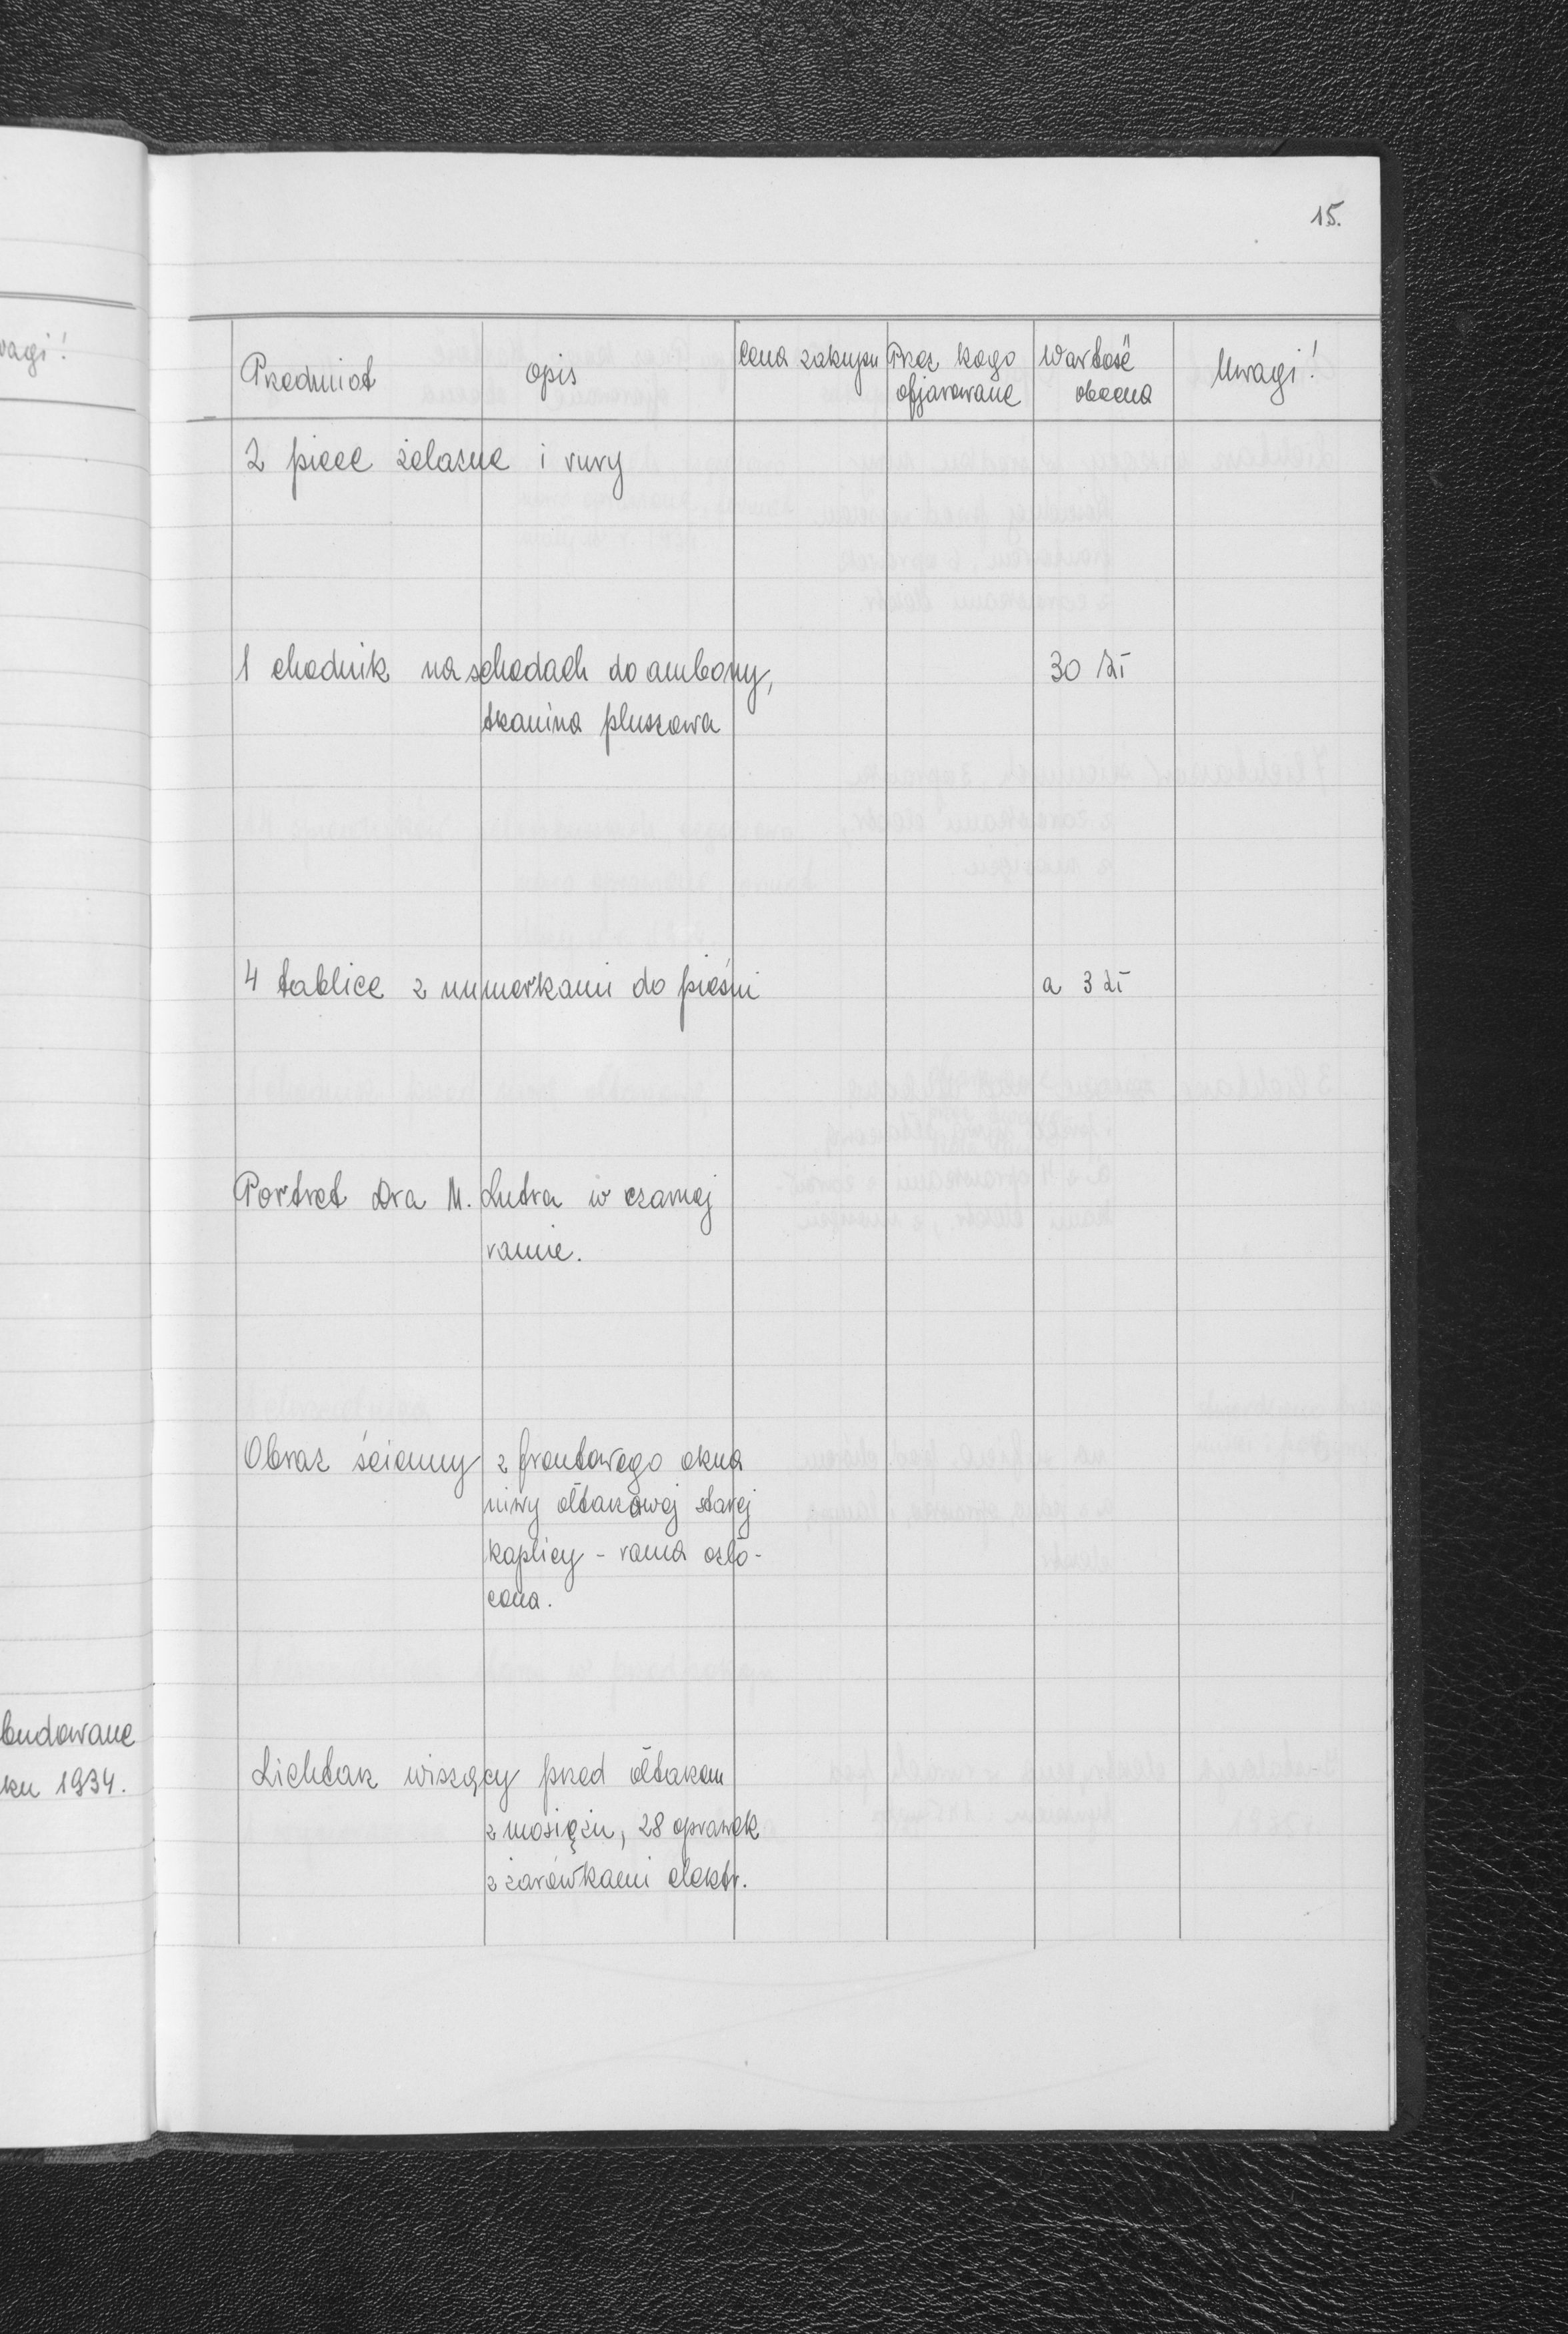 15.
wagi!
Przedmiot opis Cena zakupu Przez kogo Wartość Uwagi!
ofjarowane obecna
2 piece żelazne i rury
1 chodnik na schodach do ambony, 30 zł
tkanina pluszowa
4 tablice z numerkami do pieśni a 3 zł
Portret Dra M. Lutra w czarnej
ramie.
Obraz ścienny z frontowego okna
niwy ołtarzowej starej
kaplicy - rama ozło-
cona.
budowane
ku 1934.
Lichtarz wiszący przed ołtarzem
z mosiązu, 28 oprawek
z żarówkami elektr.